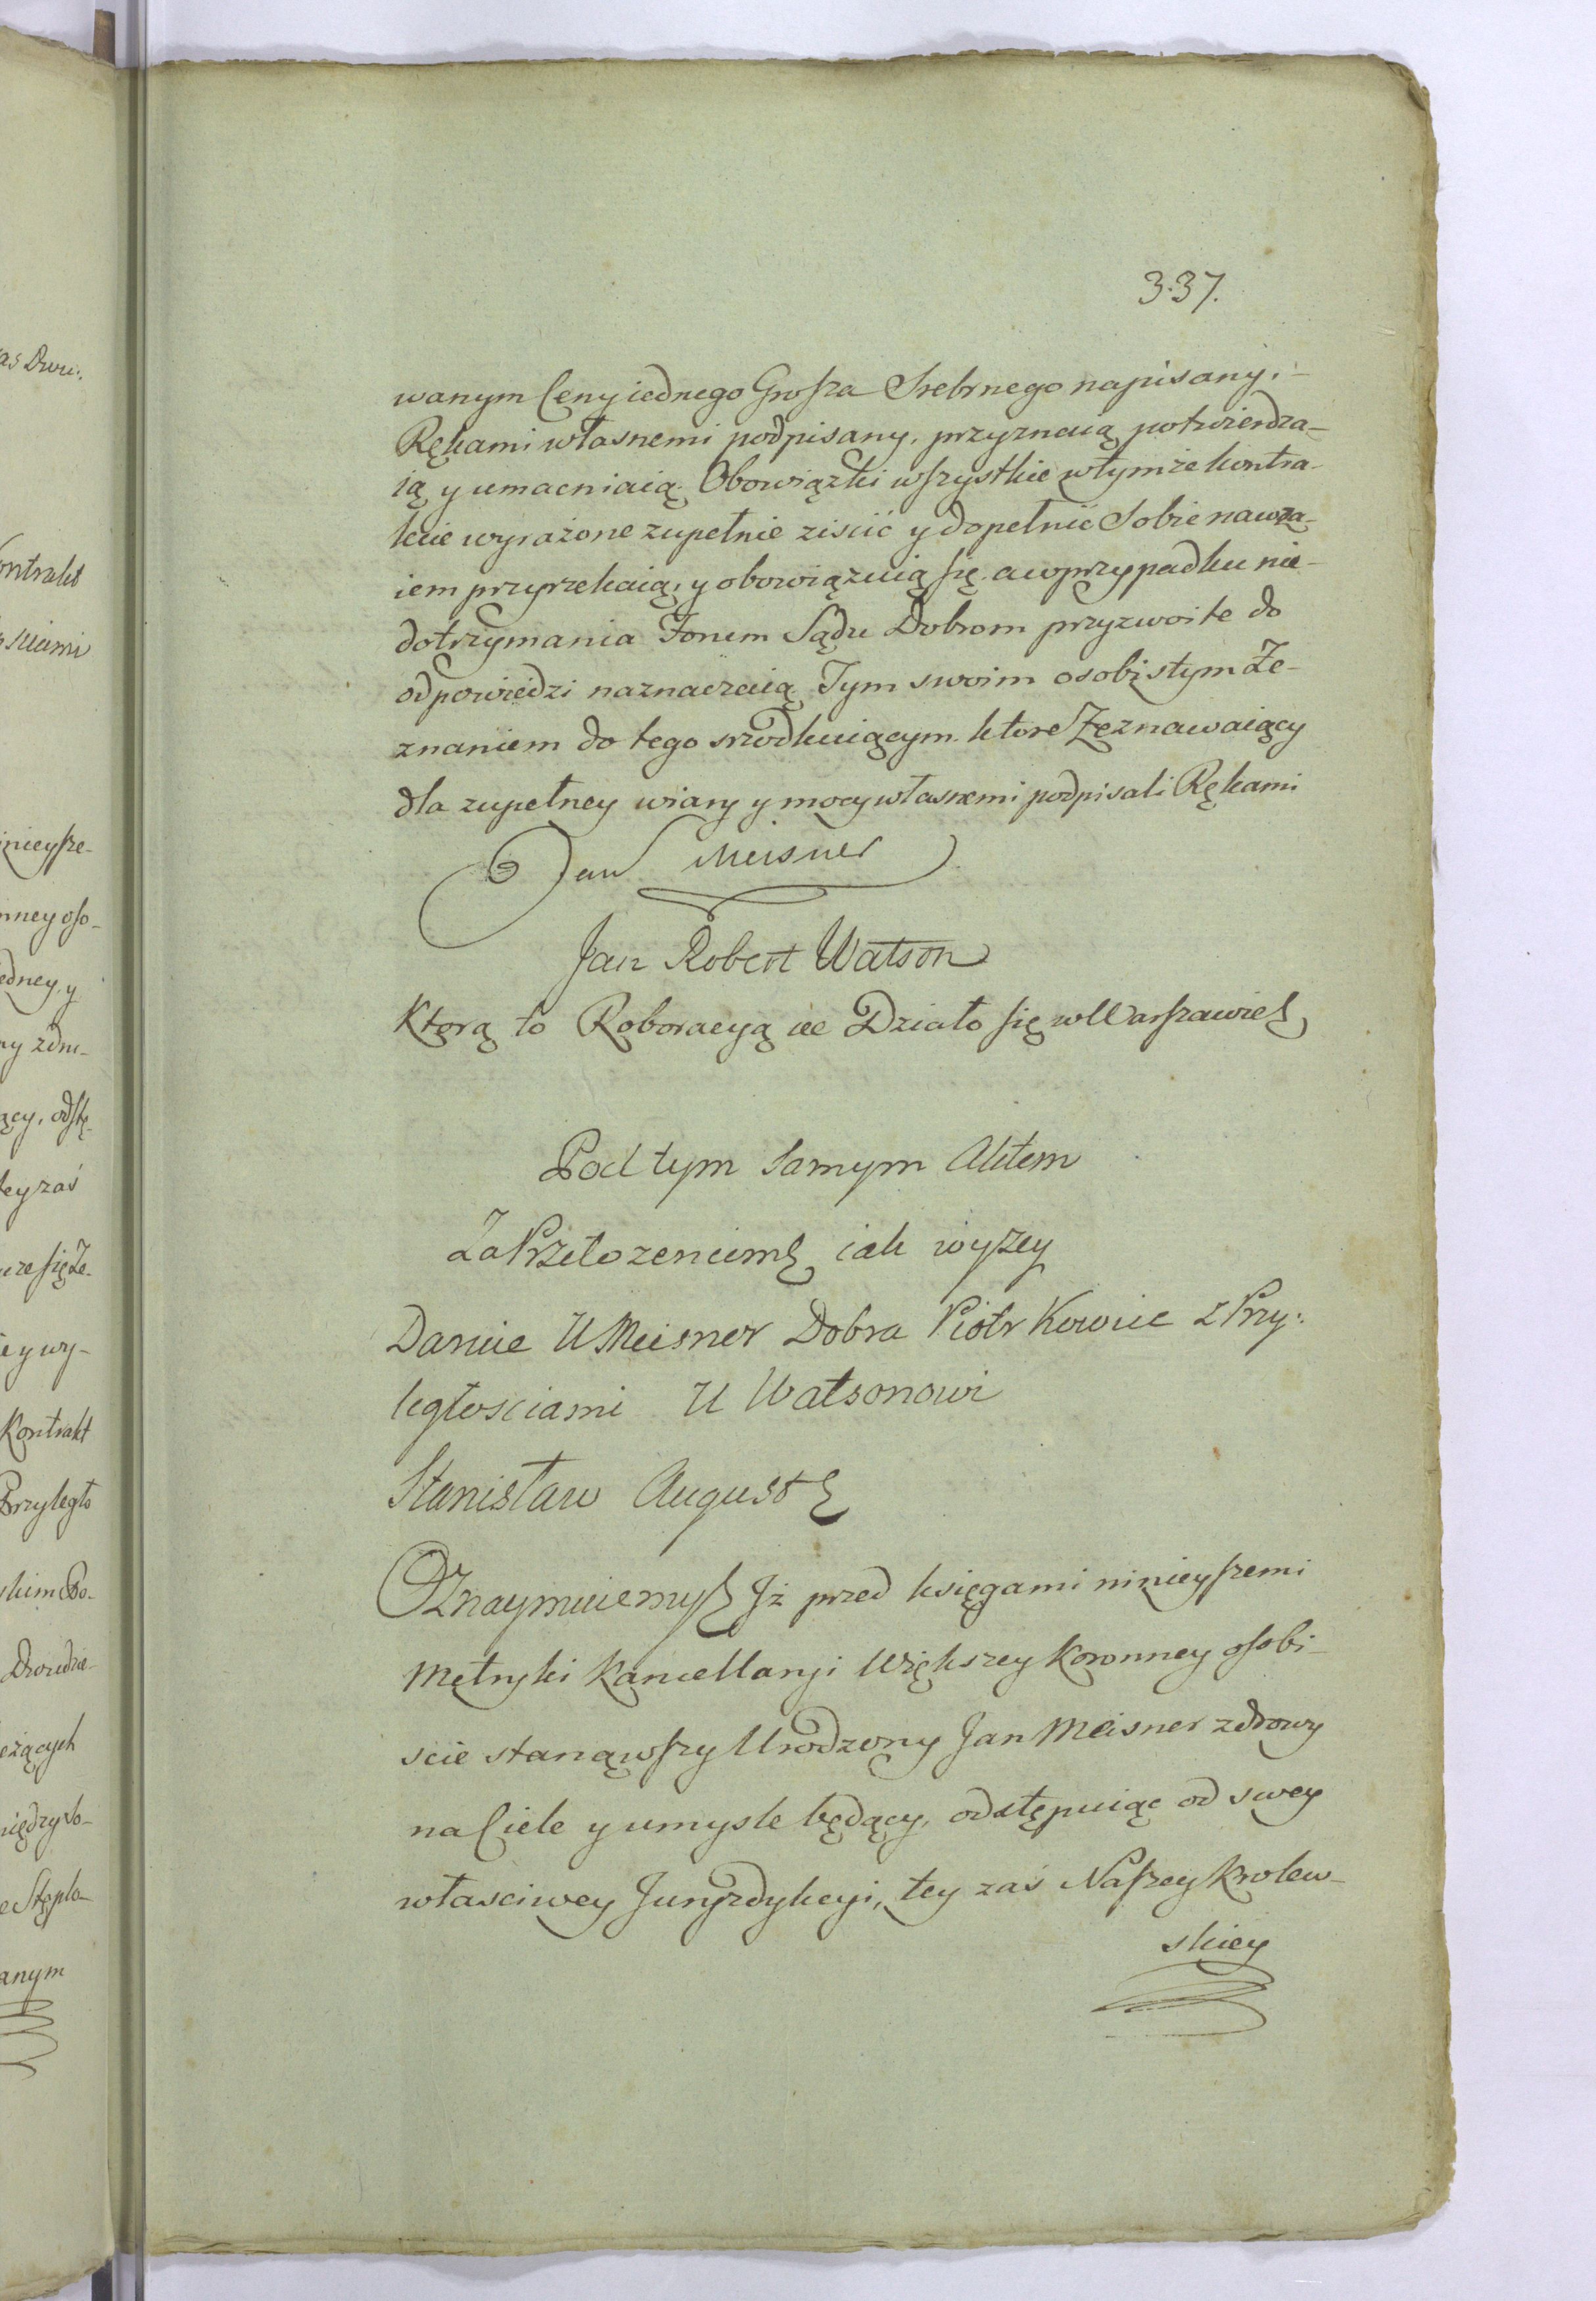 337.
wanym Ceny iednego Grosza Srebrnego napisany.
Rękami własnemi podpisany, przyznaią potwierdza-
ią y umacniaią. Obowiązki wszystkie wtymże kontra-
kcie wyrażone zupełnie ziścić y dopełnić Sobie nawza-
iem przyrzekaią, y obowiązuią się. awprzypadku nie-
dotrzymania Forum Sądu Dobrom przyzwoite do
odpowiedzi naznaczaią. Tym swoim osobistym Ze-
znaniem do tego srzodkuiącym. ktore Zeznawaiący
dla zupełney wiary y mocy własnemi podpisali Rękami
Jan Meisner
Jan Robert Watson
Ktorą to Roboracyą &c Działo się w Warszawie
Pod tym Samym Aktem
Za Przełozeniem iak wyzey
Daruie U Meisner Dobra Piotrkowice z Przy:
ległosciami U Watsonowi
Stanisław August
Oznaymuiemy Iż przed księgami ninieyszemi
Metryki Kancellaryi Większey Koronney osobi-
scie stanąwszy Urodzony Jan Meisner zdrowy
na Ciele y umysle będący, odstępuiąc od swey
własciwey Juryzdykcyi, tey zaś Naszey Krolew-
skiey
as Dwu:
ontrakt
sciami
inieysze-
nney oso-
edney, y
ny zdro-
ący, odstę-
tey zaś
ze się Ze-
ie y wy-
Kontrakt
Przyległo
skim Po-
Dwudzie-
eżących
iędzy so-
e Stępla-
anym